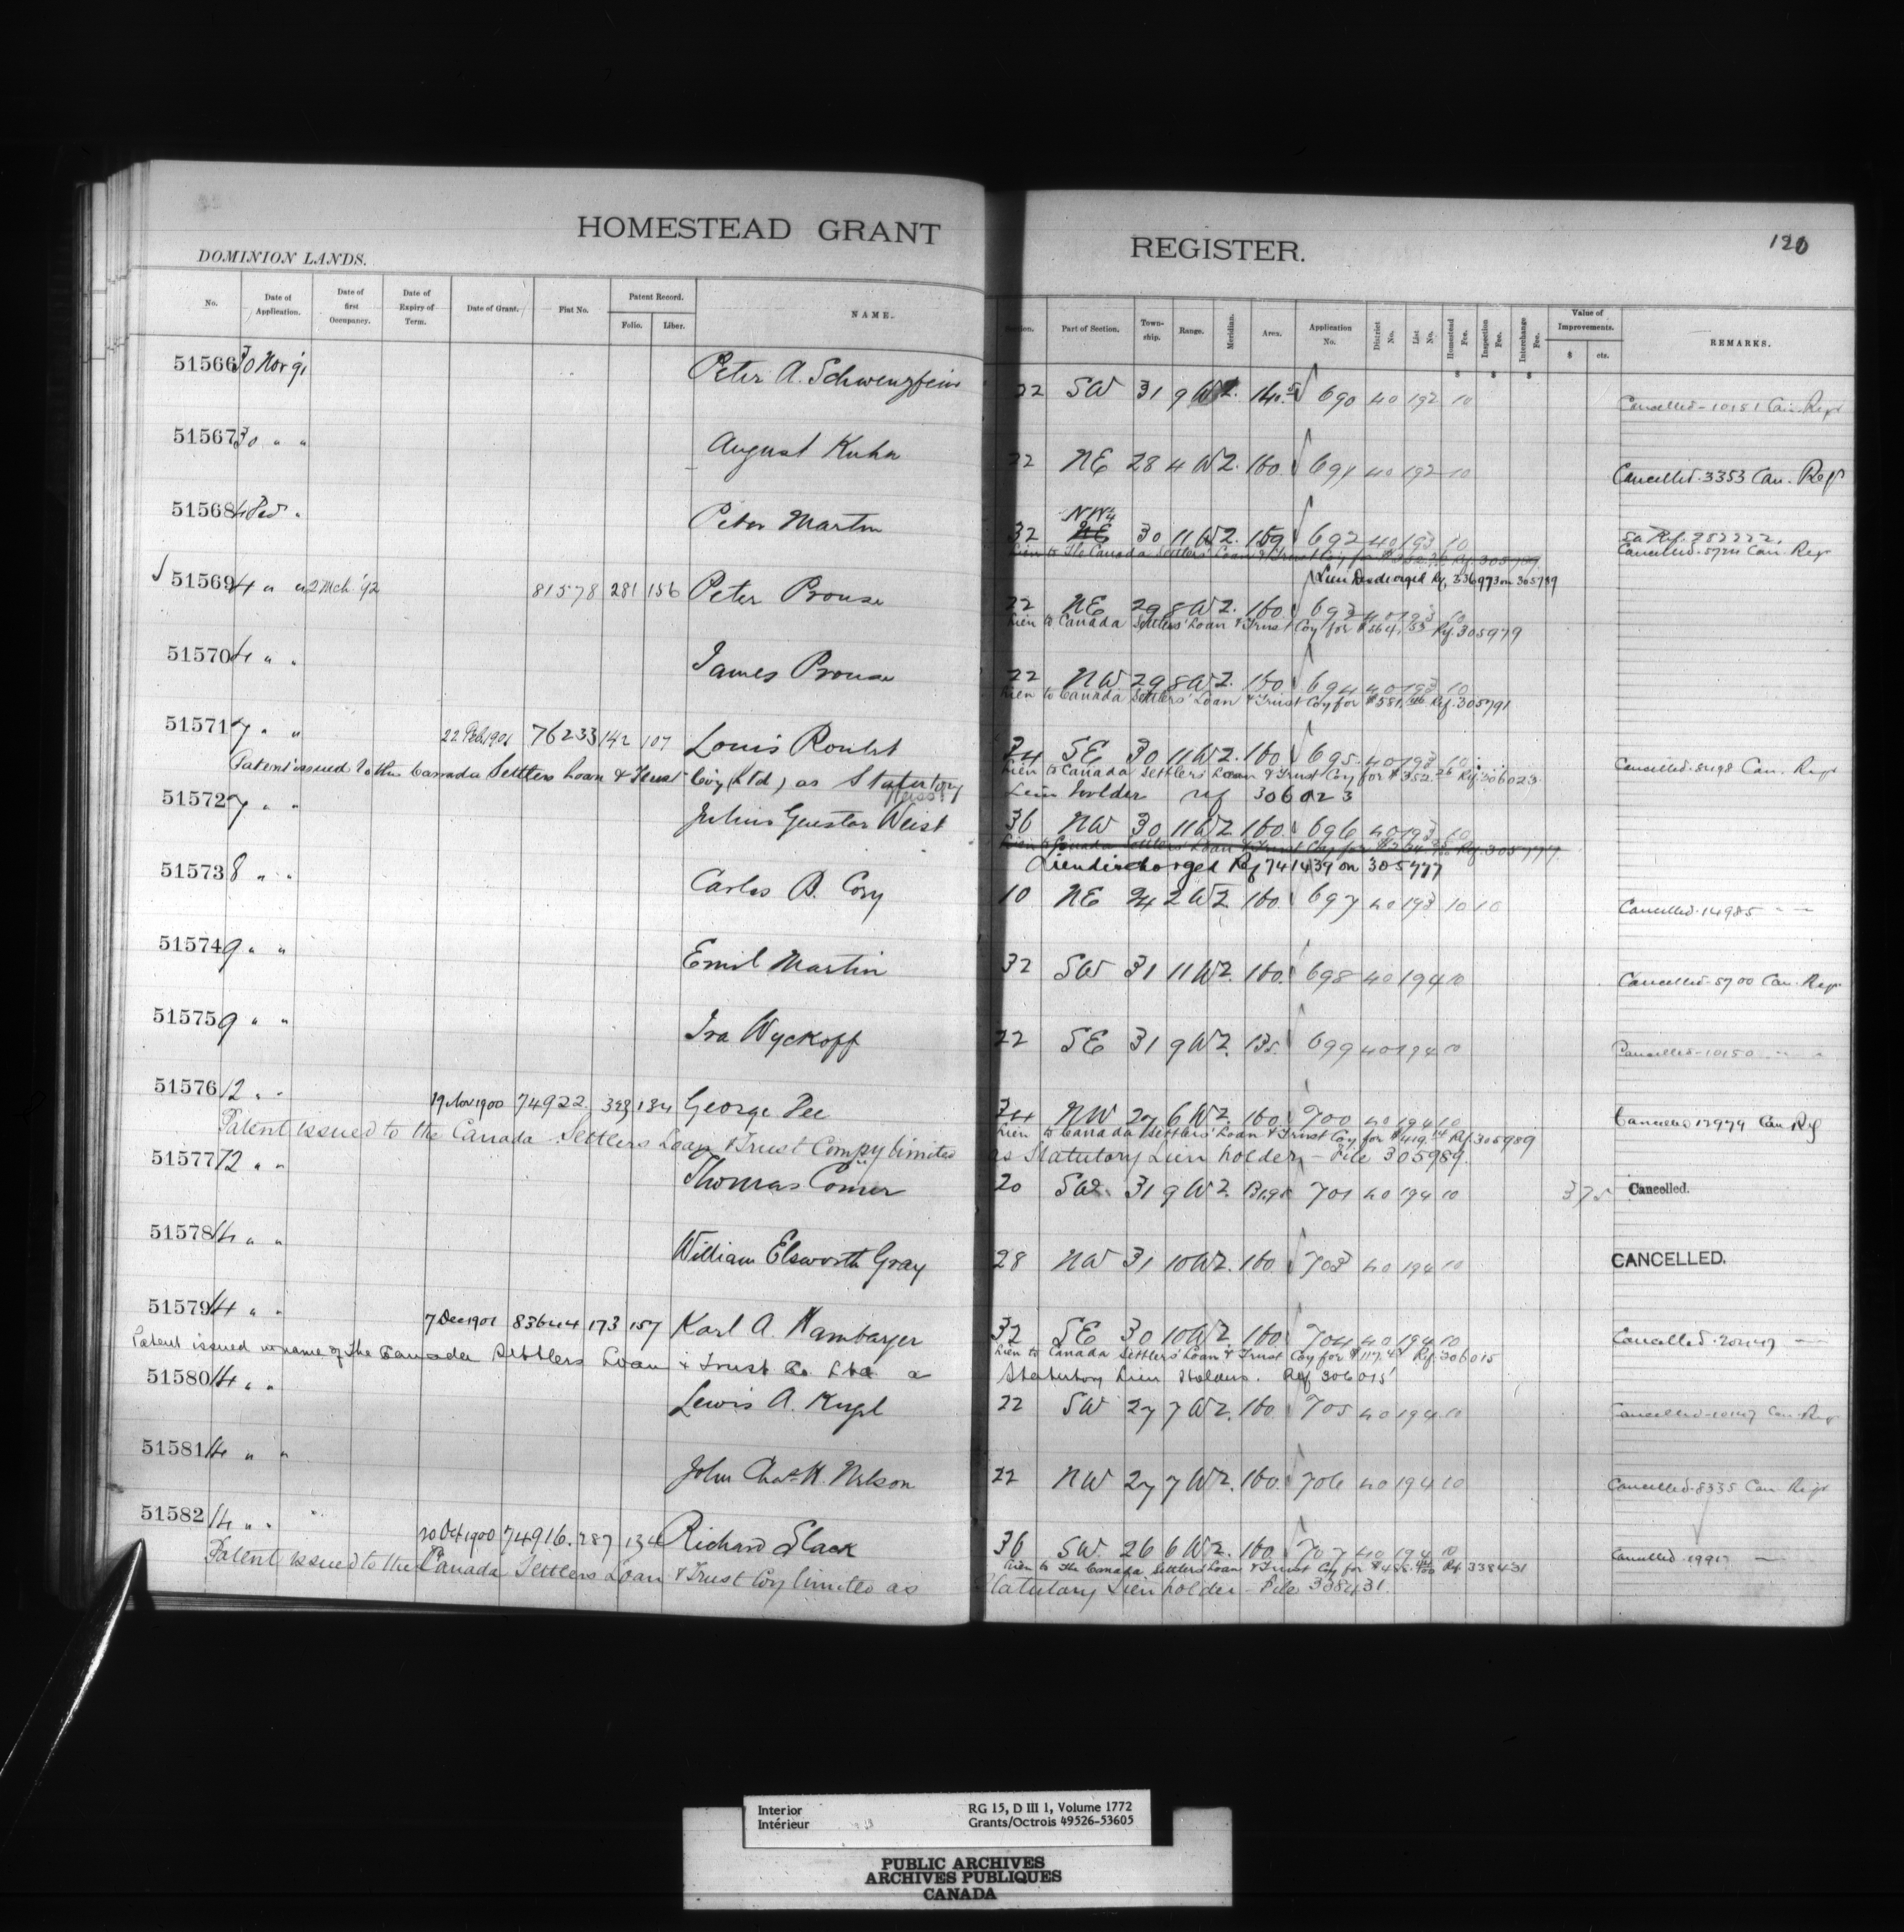 HOMESTEAD GRANT REGISTER.
120
DOMINION LANDS.
No. Date of Application. Date of first Occupancy. Date of Expiry of Term. Date of Grant. Fiat No. Patent Record. Folio. Liber. NAME. Section. Part of Section. Township. Range. Meridian. Area. Application No. District No. List No. Homestead Fee. Inspection Fee. Interchange Fee. Value of Improvements. $ cts. REMARKS.
51566 30 Nov '91 Peter A. 22 SW 31 9 W2. 690 40 192 10 Cancelled-10151 Can. Regr
51567 30 " " August Kuhn 22 NE 28 4 W2. 160. 691 40 192 10 Cancelled.3353 Can. Regr
51568 4 Dec " Peter Martin 32 NE NW4 30 11 W2. 692 40 193 10 Cancelled.5724 Can. Regr
Lien to The Canada Settlers' Loan & Trust Coy for Rf. 305789
Lien Discharged Rf. 336973 on 305789
51569 4 " " 2 Mch '92 81578 281 156 Peter Prouse 22 NE 29 8 W2. 160 693 40 193 10
Lien to Canada Settlers' Loan & Trust Coy for $564.53 Rf. 305979
51570 4 " " James Prouse 22 NW 29 8 W2. 160 694 40 193 10
Lien to Canada Settlers' Loan & Trust Coy for $581. Rf. 305791
51571 7 " " 22 Feb 1901 76233 142 107 Louis 24 SE 30 11 W2. 160 695 40 193 10 Cancelled. Can. Regr
Lien to Canada Settlers' Loan & Trust Coy for $352.26 Rf. 306023
Patent issued to the Canada Settlers Loan & Trust Coy (Ltd) as Statutory Lien holder ref 306023
51572 7 " " Julius Gustav Weist 36 NW 30 11 W2 160 696 40 193 10
Lien to Canada Settlers' Loan & Trust Coy for Rf. 305777
Lien discharged Rf 741439 on 305777
51573 8 " " Carlos B. Cory 10 NE 24 2 W2 160. 697 40 193 10 10 Cancelled.14985 " "
51574 9 " " Emil Martin 32 SW 31 11 W2. 160. 698 40 194 10 Cancelled.5700 Can. Regr
51575 9 " " Ira Wyckoff 22 SE 31 9 W2. 699 40 194 10 Cancelled-10150 " "
51576 12 " " 19 Nov 1900 74922. 323 134 George Pee 24 NW 27 6 W2. 160. 700 40 194 10 Cancelled 17979 Can Rg
Lien to Canada Settlers' Loan & Trust Coy for $419.14 Rf. 305989
Patent issued to the Canada Settlers Loan & Trust Compy limited as Statutory Lien holder - File 305989.
51577 12 " " Thomas Comer 20 SW. 31 9 W2 701 40 194 10 375 Cancelled.
51578 14 " " William Elsworth Gray 28 NW 31 10 W2. 160 703 40 194 10 CANCELLED.
51579 14 " " 7 Dec 1901 83644 173 157 Karl A. Hambarger 32 SE 30 10 W2. 160. 704 40 194 10 Cancelled.
Lien to Canada Settlers' Loan & Trust Coy for Rf. 306015
Patent issued in name of The Canada Settlers Loan & Trust Co. Ltd a Statutory Lien Holders. Ref 306015
51580 14 " " Lewis A. 22 SW 27 7 W2. 160 705 40 194 10 Cancelled Can. Regr
51581 14 " " John Chas. H. Nelson 22 NW 27 7 W2. 160. 706 40 194 10 Cancelled.8335 Can Regr
51582 14 " " 20 Oct 1900 74916. 287 134 Richard Slack 36 SW. 26 6 W2. 160. 707 40 194 10 Cancelled
Lien to The Canada Settlers' Loan & Trust Coy for Rf 338431
Patent issued to the Canada Settlers Loan & Trust Coy limited as Statutory Lien holder - File 338431.
Interior RG 15, D III 1, Volume 1772
Intérieur Grants/Octrois 49526-53605
PUBLIC ARCHIVES
ARCHIVES PUBLIQUES
CANADA